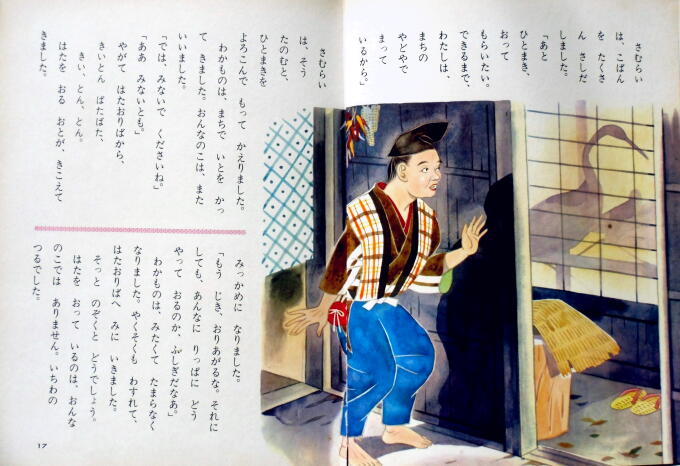 さむらい
は、こばん
を たくさ
ん さしだ
しました。
「あと
ひとまき、
おって
もらいたい。
できるまで、
わたしは、
まちの
やどやで
まって
いるから。」
さむらい
は、そう
たのむと、
ひとまきを
よろこんで もって かえりました。
わかものは、まちで いとを かっ
て きました。おんなのこは、また
いいました。
「では、みないで くださいね。」
「ああ みないとも。」
やがて はたおりばから、
きいとん ぱたぱた、
きい、とん、とん。
はたを おる おとが、きこえて
きました。
みっかめに なりました。
「もう じき、おりあがるな。それに
しても、あんなに りっぱに どう
やって おるのか、ふしぎだなあ。」
わかものは、みたくて たまらなく
なりました。やくそくも わすれて、
はたおりばへ みに いきました。
そっと のぞくと どうでしょう。
はたを おって いるのは、おんな
のこでは ありません。いちわの
つるでした。
17